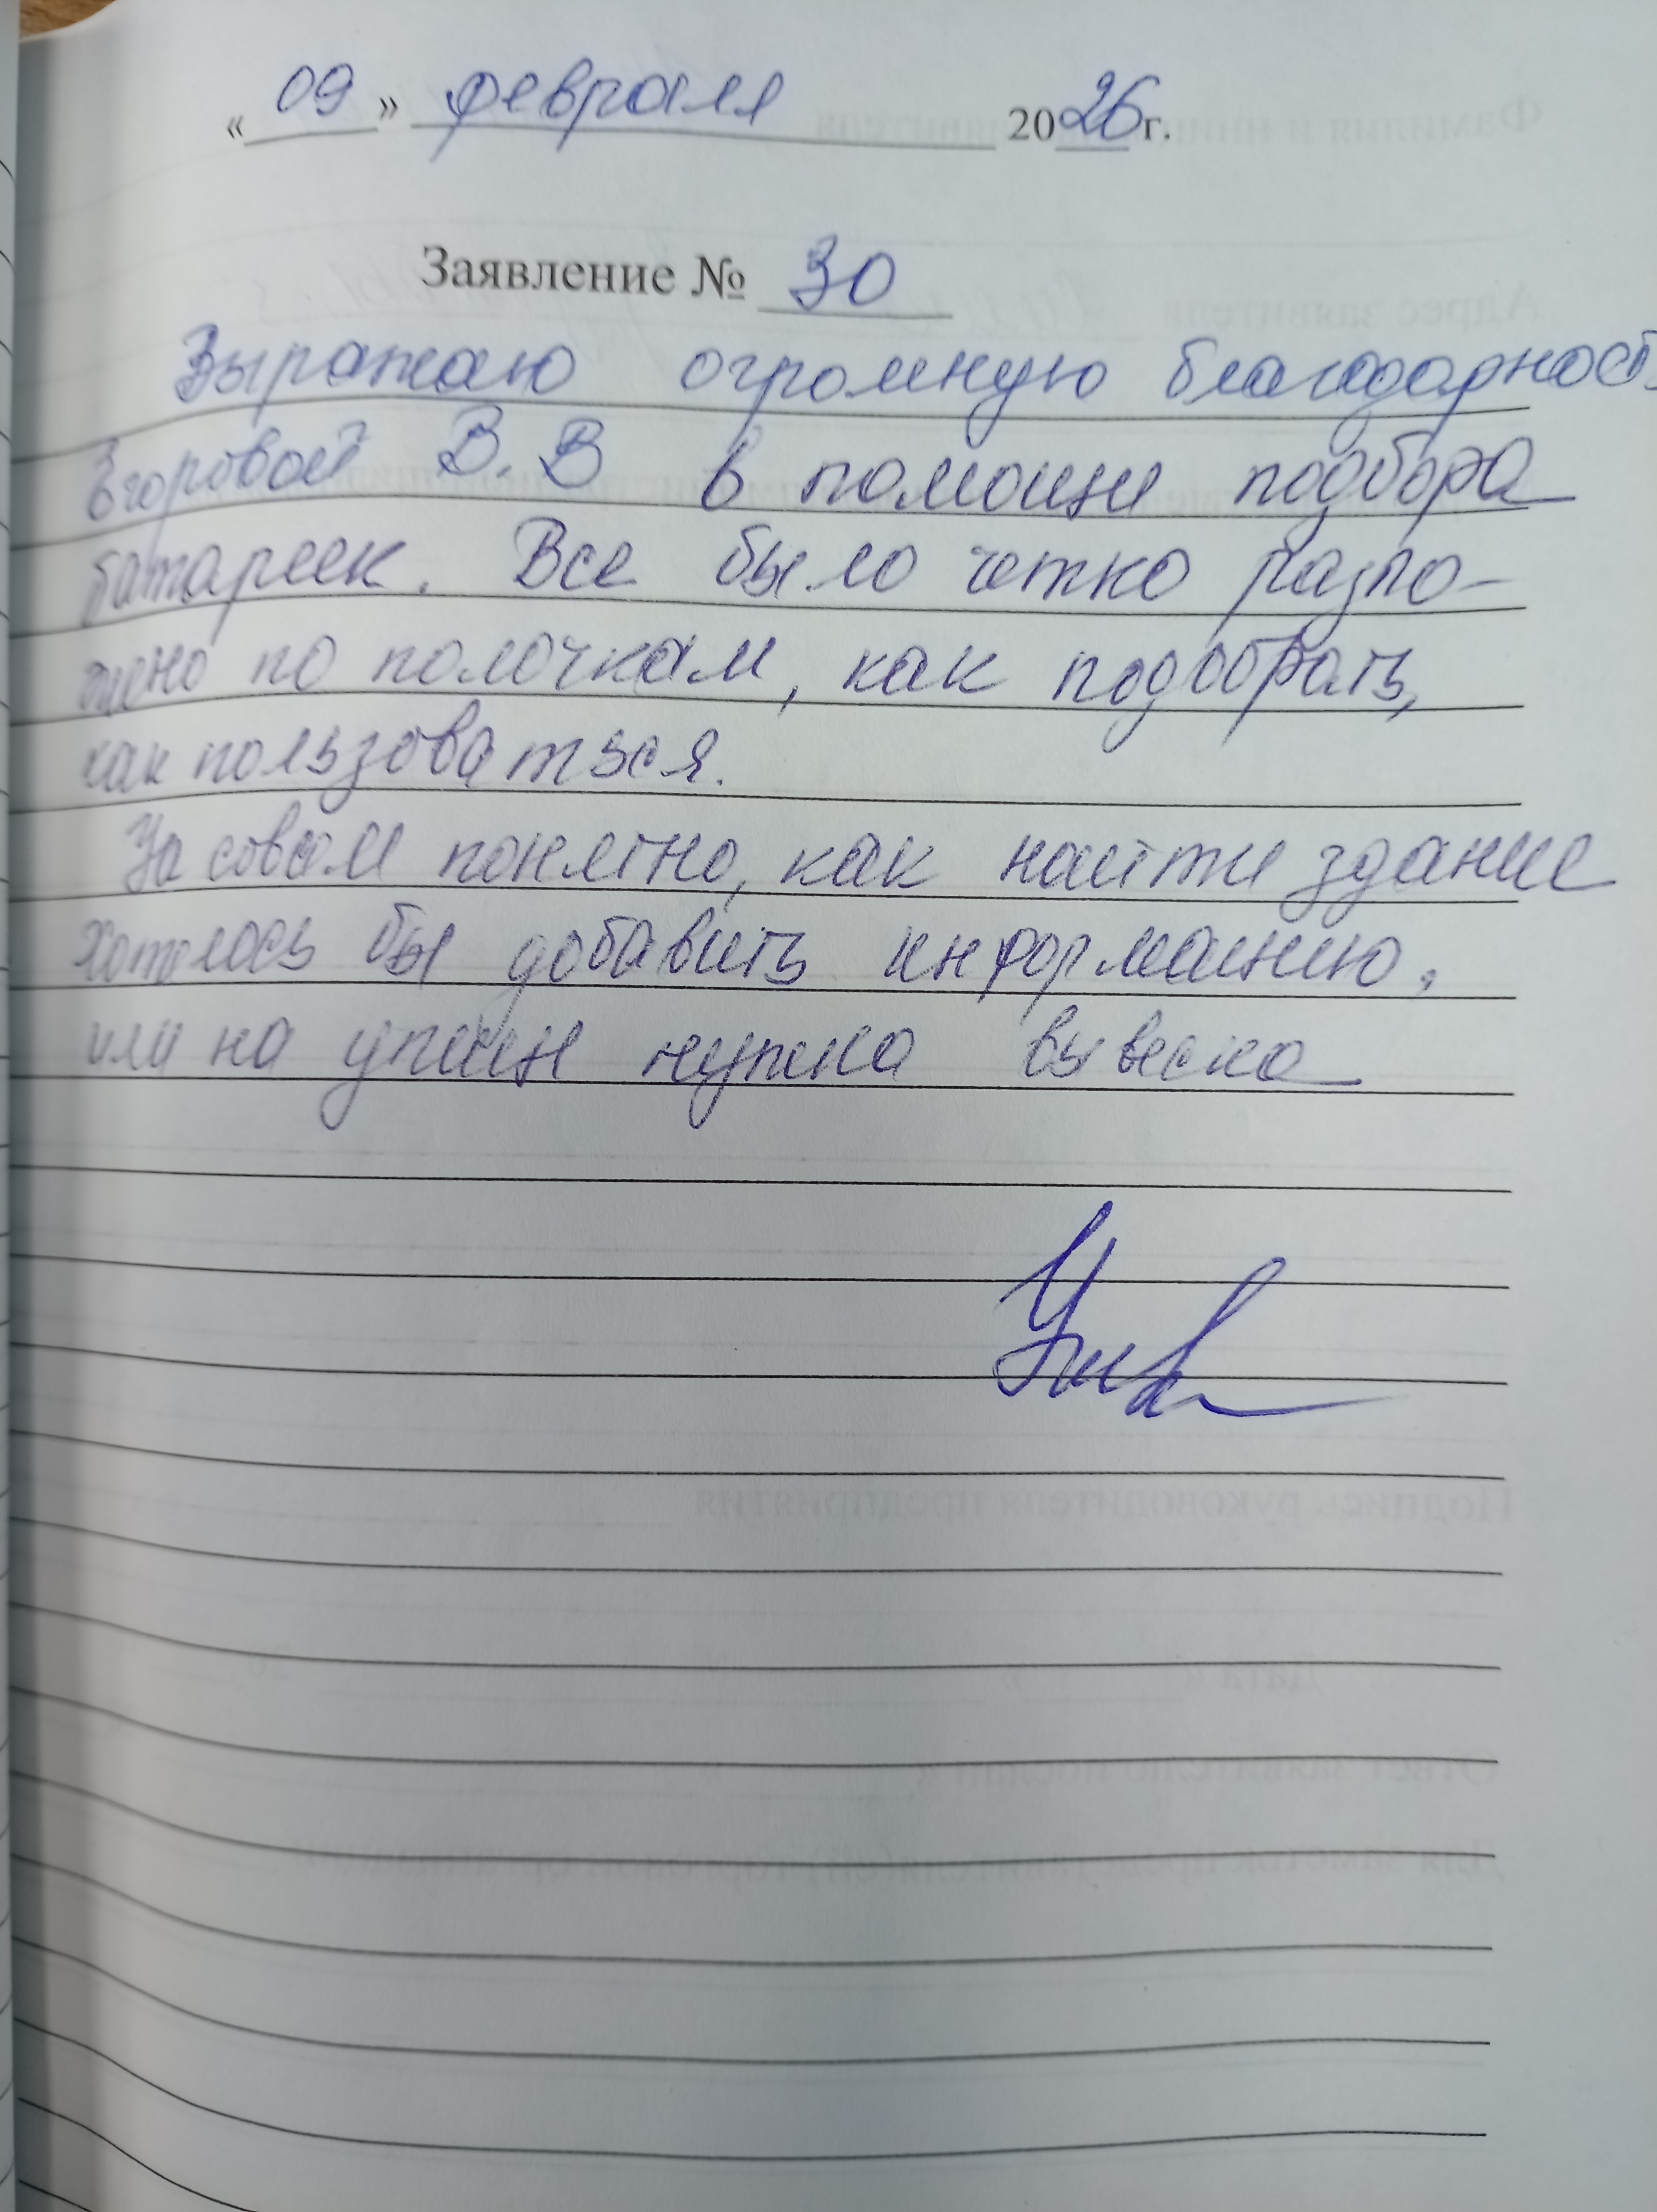 «09» февраля 2026г.
Заявление № 30
Выражаю огромную благодарность
Егоровой В.В в помощи подбора
батареек. Все было четко разло-
жено по полочкам, как подобрать,
как пользоваться.
совсем понятно, как найти здание
хотелось бы добавить информацию,
или на нужна вывеска